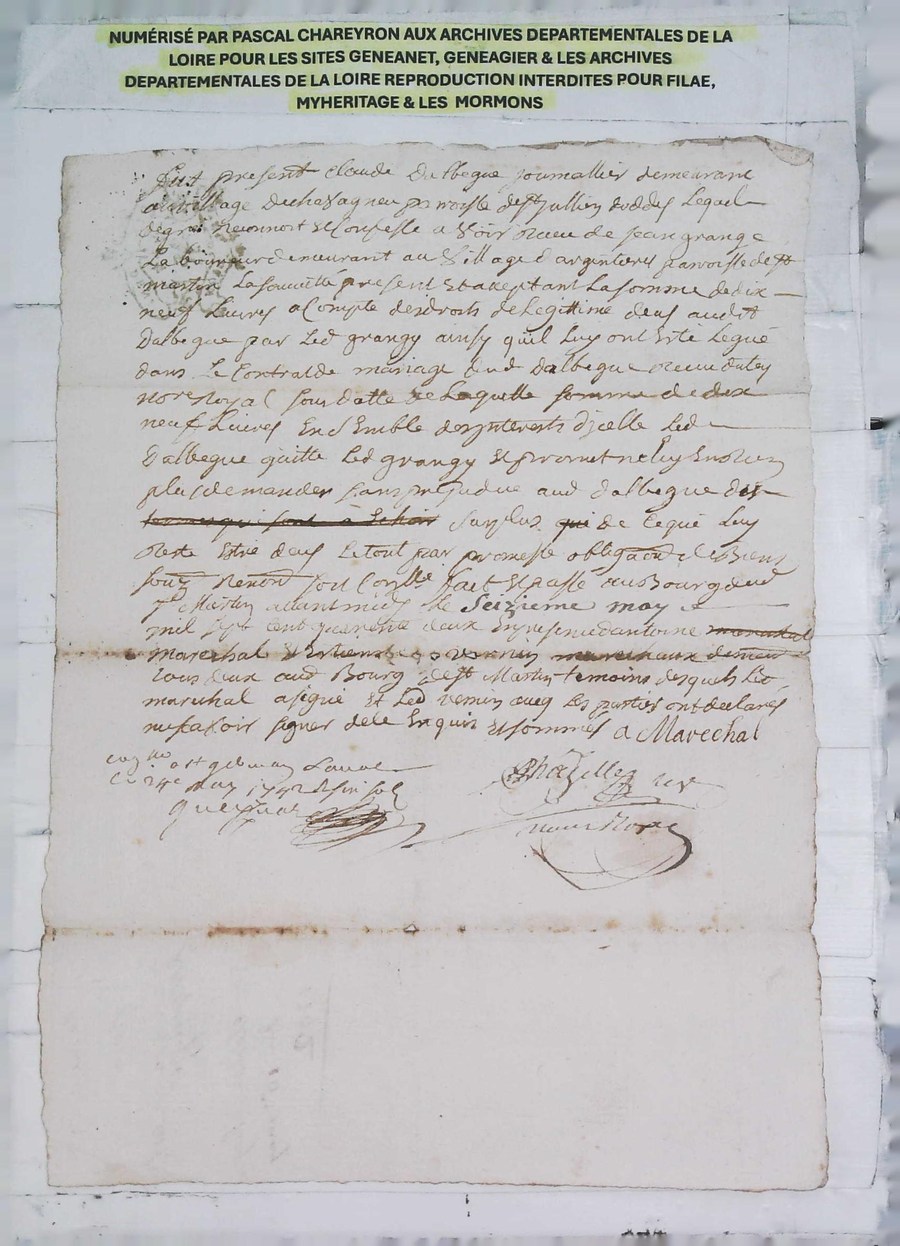 NUMÉRISÉ PAR PASCAL CHAREYRON AUX ARCHIVES DEPARTEMENTALES DE LA
LOIRE POUR LES SITES GENEANET, GENEAGIER & LES ARCHIVES
DEPARTEMENTALES DE LA LOIRE REPRODUCTION INTERDITES POUR FILAE,
MYHERITAGE & LES MORMONS
fust present claude Dalbegue journallier demeurant
au village parroisse de st Jullien doddes Lequel
de gré reconnoit & Confesse avoir receu de jean grange
Laboureur demeurant au Village d'argentieres parroisse de st
martin La sauveté present & acceptant La somme de dix
neuf Livres a Compte des droits de Legittime deus audit
Dalbegue par Led grangy ainsy quil Luy ont esté Legué
dans Le Contrat de mariage dud Dalbegue receu
nore Royal sous datte de Laquelle somme de dix
neuf Livres Ensemble des jnterests djcelle Led
Dalbegue quitte Led grangy & promet ne luy En rien
plus demander sans prejudice aud dalbegue des
surplus de legué Luy
Reste Estre deus Le tout par promesse obligaon de Biens
soum Renond fait & passé au Bourg dud
st Martin avant midy Le Seizieme may
mil sept cent quarente deux En presence d'antoine
marechal & Vernin
tous deux aud Bourg de st Martin temoins desquels Led
marechal a signé Et Led vernin avec Les parties ont declarés
ne sçavoir signer de ce Enquis & sommés a Marechal
may 1742